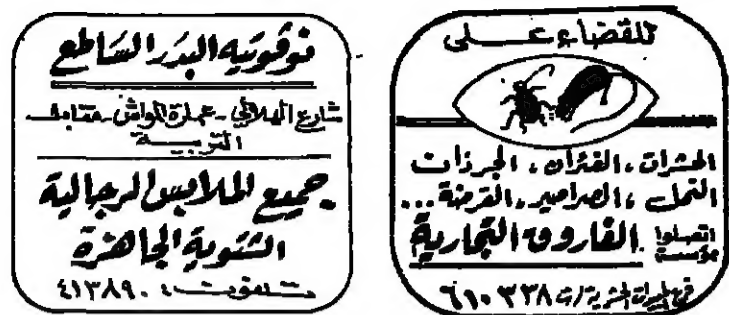 للقضاء على
الحشرات، الفئران، الجرذان
النمل، الصراصير، القرضة...
اتصلوا بمؤسسة الفاروق التجارية
ت/ ٦١٠٣٣٨
نوفوتيه البدر الساطع
شارع الهلالي - عمارة - مقابل
التربية
جميع الملابس الرجالية
الشتوية الجاهزة
تلفون: ٤١٣٨٩٠